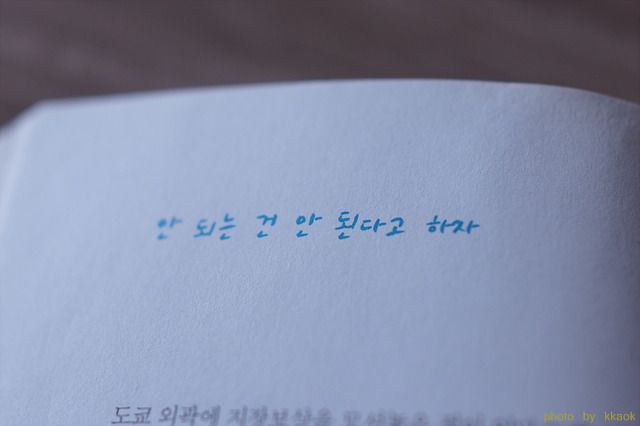 안 되는 건 안 된다고 하자
도쿄 외곽에
photo by kkaok